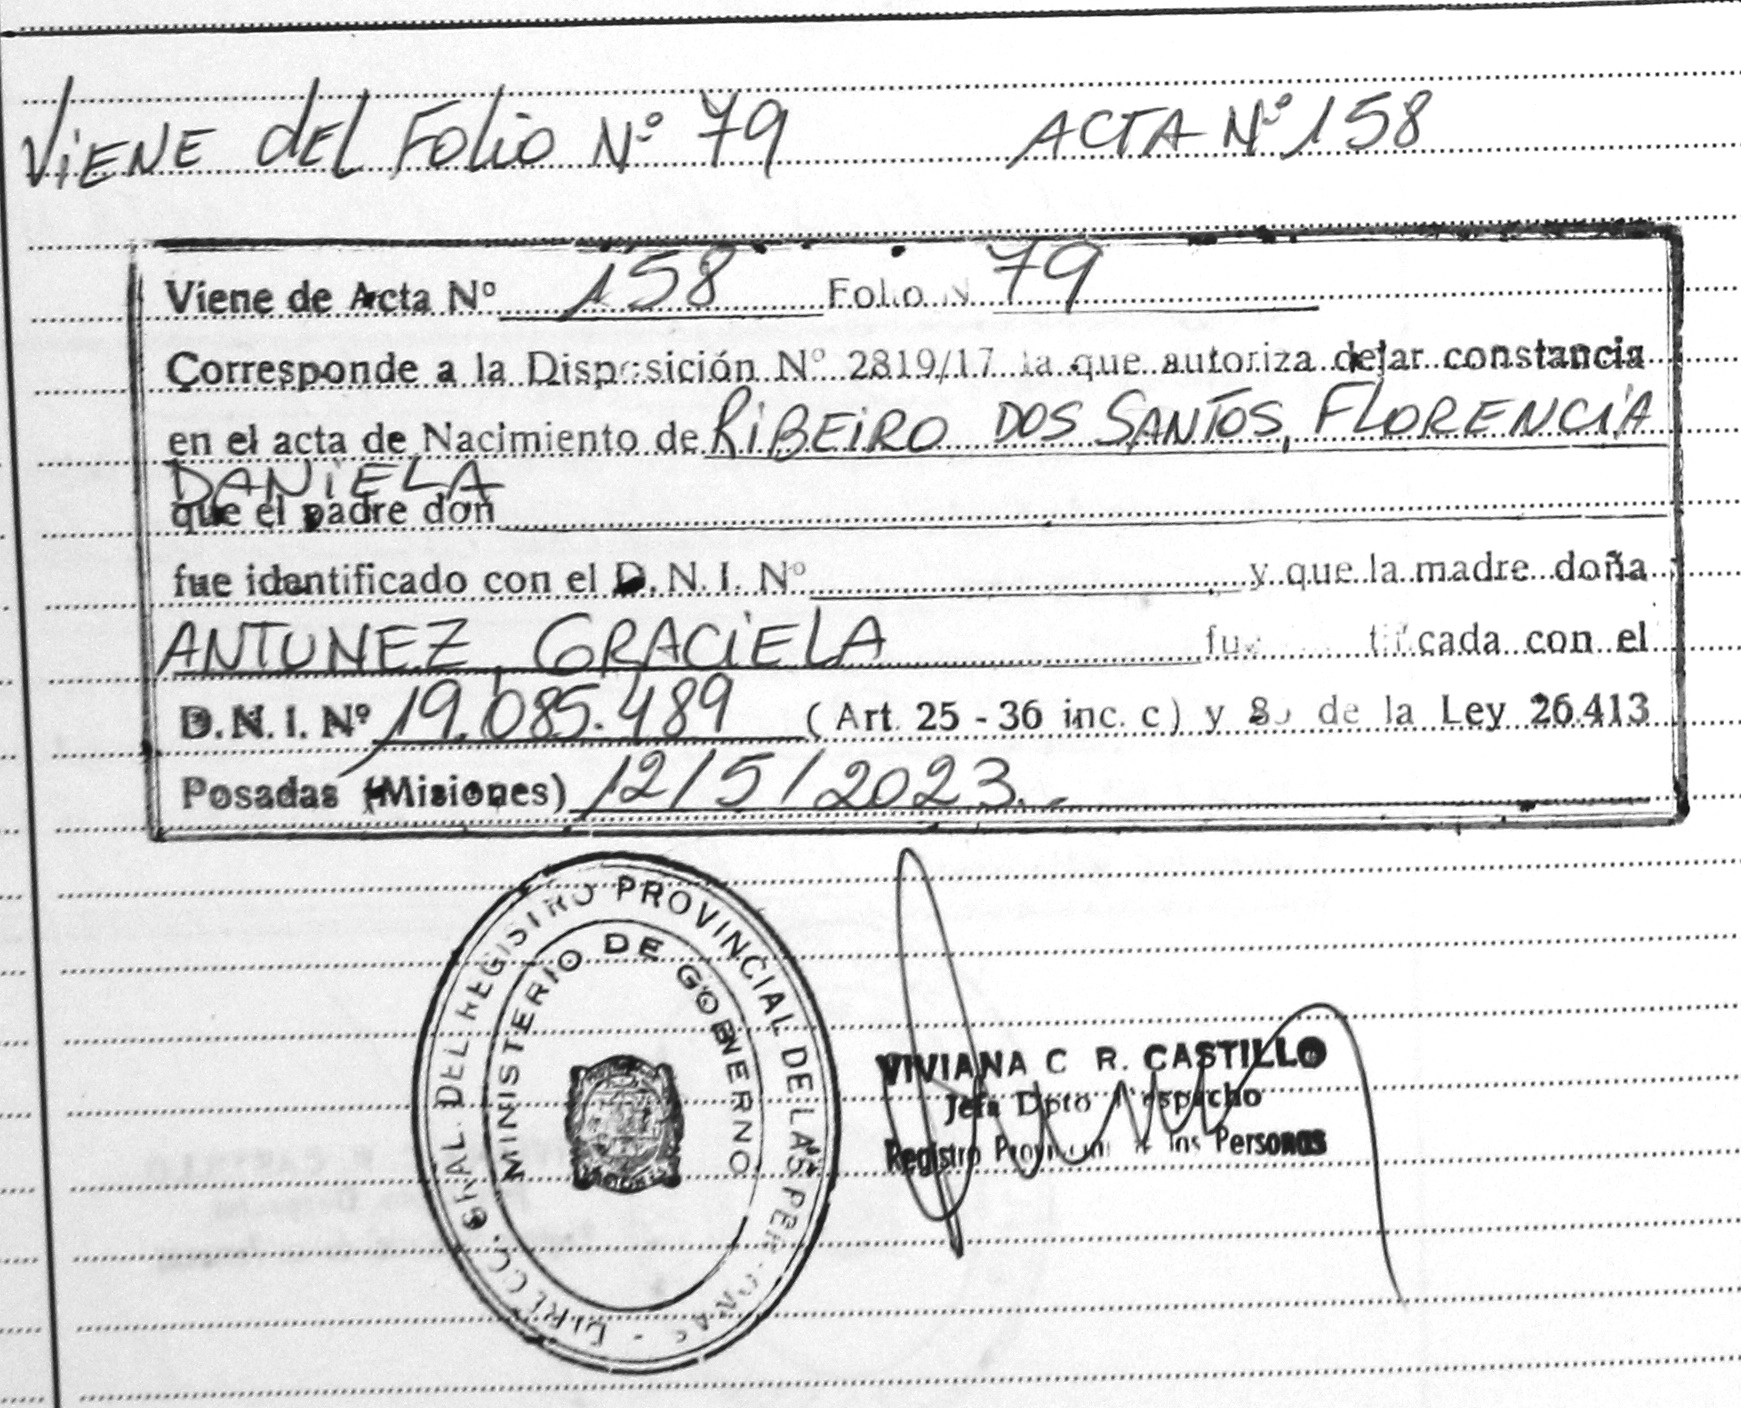 ViENE dEL FOLiO Nº 79 ACTA Nº 158
Viene de Acta Nº 158 Folio N 79
Corresponde a la Disposición Nº 2819/17 la que autoriza dejar constancia
en el acta de Nacimiento de RiBEiRO DOS SANTOS, FLORENCiA
DANiELA
que el padre don
fue identificado con el D. N. I. Nº y que la madre doña
ANTUNEZ, GRACiELA cada con el
D. N. I. Nº 19.085.489 (Art. 25 - 36 inc. c) y de la Ley 26.413
Posadas (Misiones) 12/5/2023.-
DIRECC. GRAL. DEL REGISTRO PROVINCIAL DE LAS PERSONAS
MINISTERIO DE GOBIERNO
VIVIANA C R. CASTILLO
Jefa Dpto Despacho
Registro Provincial de las Personas